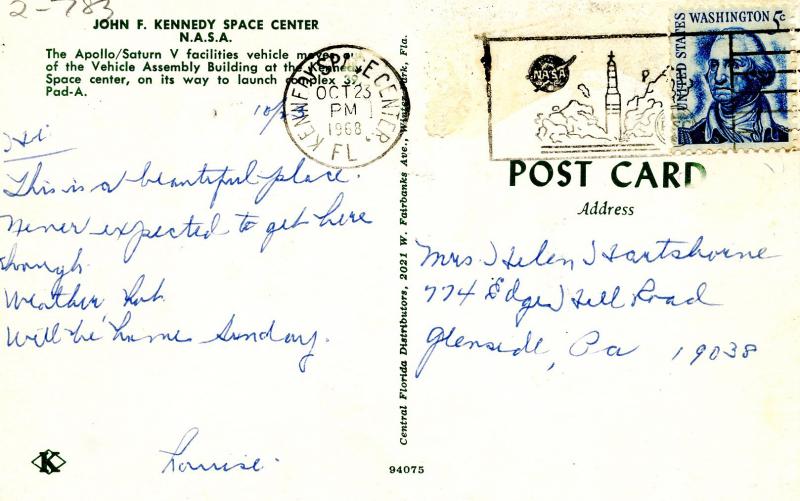 2-783
JOHN F. KENNEDY SPACE CENTER
N.A.S.A.
The Apollo/Saturn V facilities vehicle moves out
of the Vehicle Assembly Building at the Kennedy
Space center, on its way to launch complex 39,
Pad-A.
KENNEDY SPACE CENTER, FL
OCT 23
PM
1968
10/
Hi
This is a beautiful place.
Never expected to get here
though.
Weather hot.
Will be home Sunday.
Louise.
K
Central Florida Distributors, 2021 W. Fairbanks Ave., Winter Park, Fla.
94075
NASA
UNITED STATES
WASHINGTON 5c
POST CARD
Address
Mrs Helen Hartshorne
774 Edge Hill Road
Glenside, Pa 19038